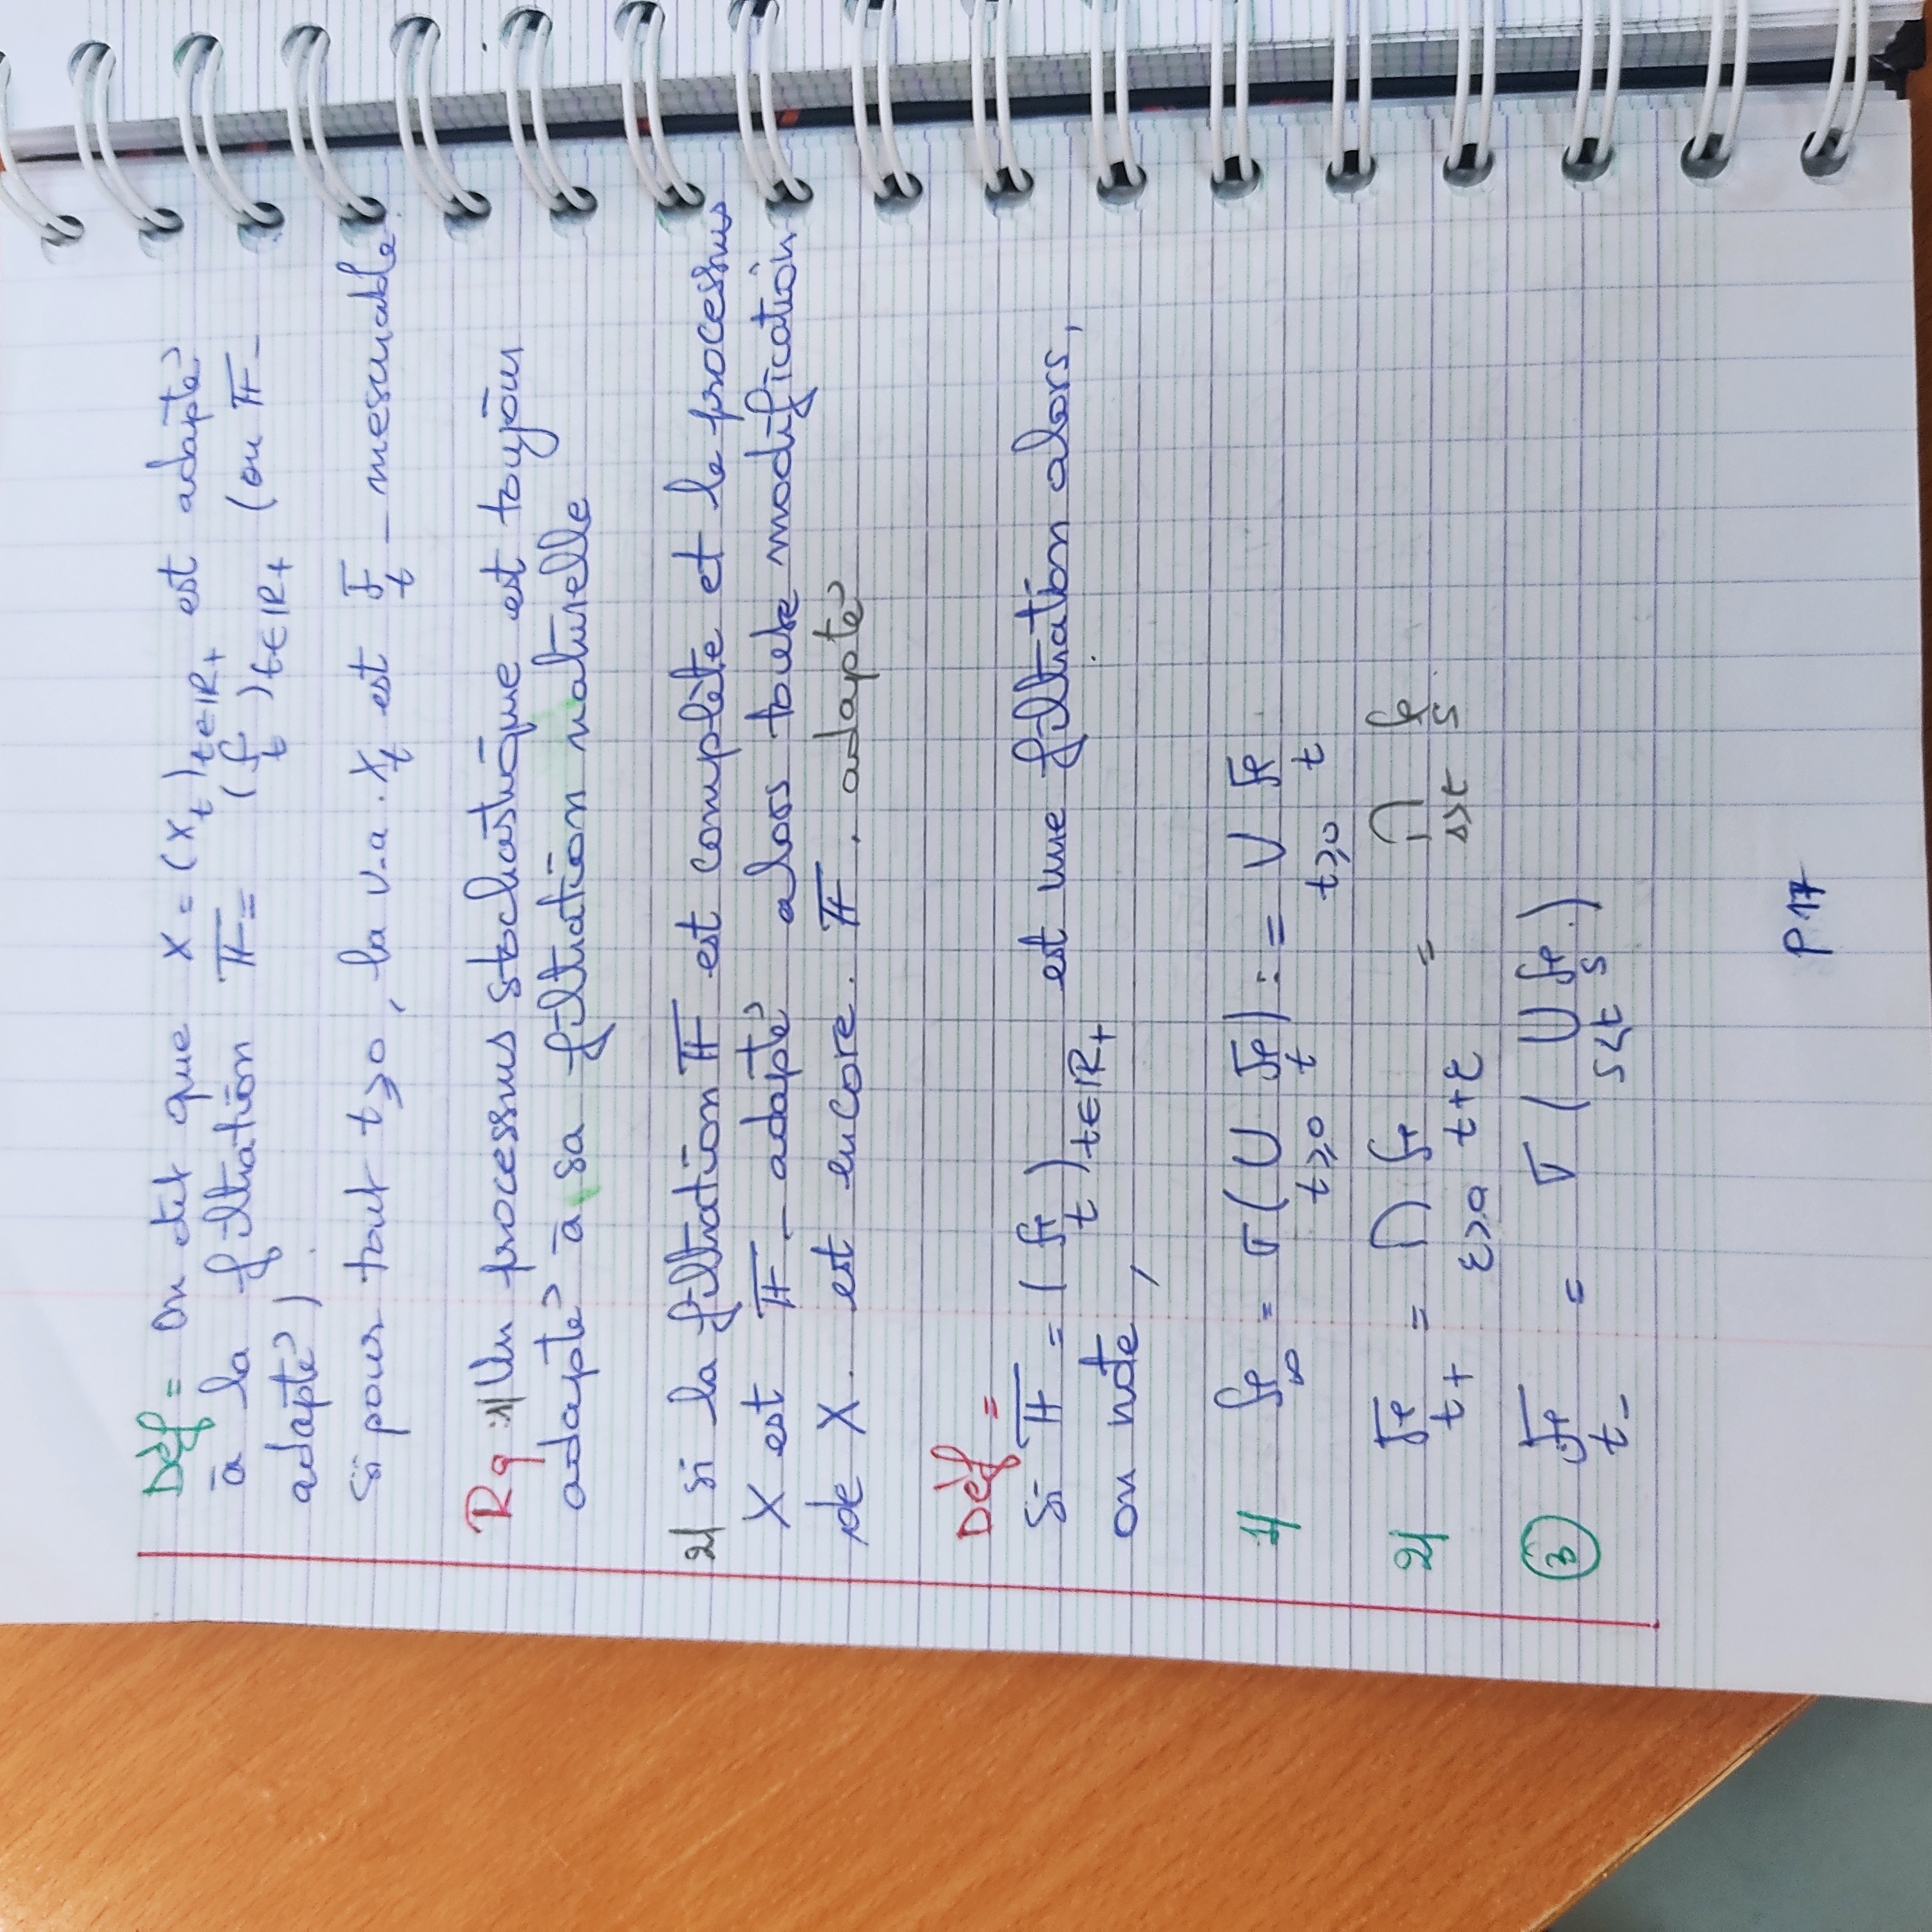 Déf = On dit que X = (X_t)_{t∈IR+} est adapté
à la filtration 𝔽 = (F_t)_{t∈IR+} (ou 𝔽-
adapté).
si pour tout t⩾0, la v.a. X_t est F_t - mesurable.
Rq :1/ Un processus stochastique est toujour
adapté à sa filtration naturelle
2/ si la filtration 𝔽 est complète et le processus
X est 𝔽 - adapté alors toute modification
de X. est encore. 𝔽. adapté
Déf =
Si 𝔽 = (F_t)_{t∈IR+} est une filtration alors,
on note,
1/ F_∞ = σ(∪_{t⩾0} F_t) := ∨_{t⩾0} F_t
2/ F_{t+} = ∩_{ε>0} F_{t+ε} = ∩_{s>t} F_s
3 F_{t-} = σ(∪_{s<t} F_s.)
P 17